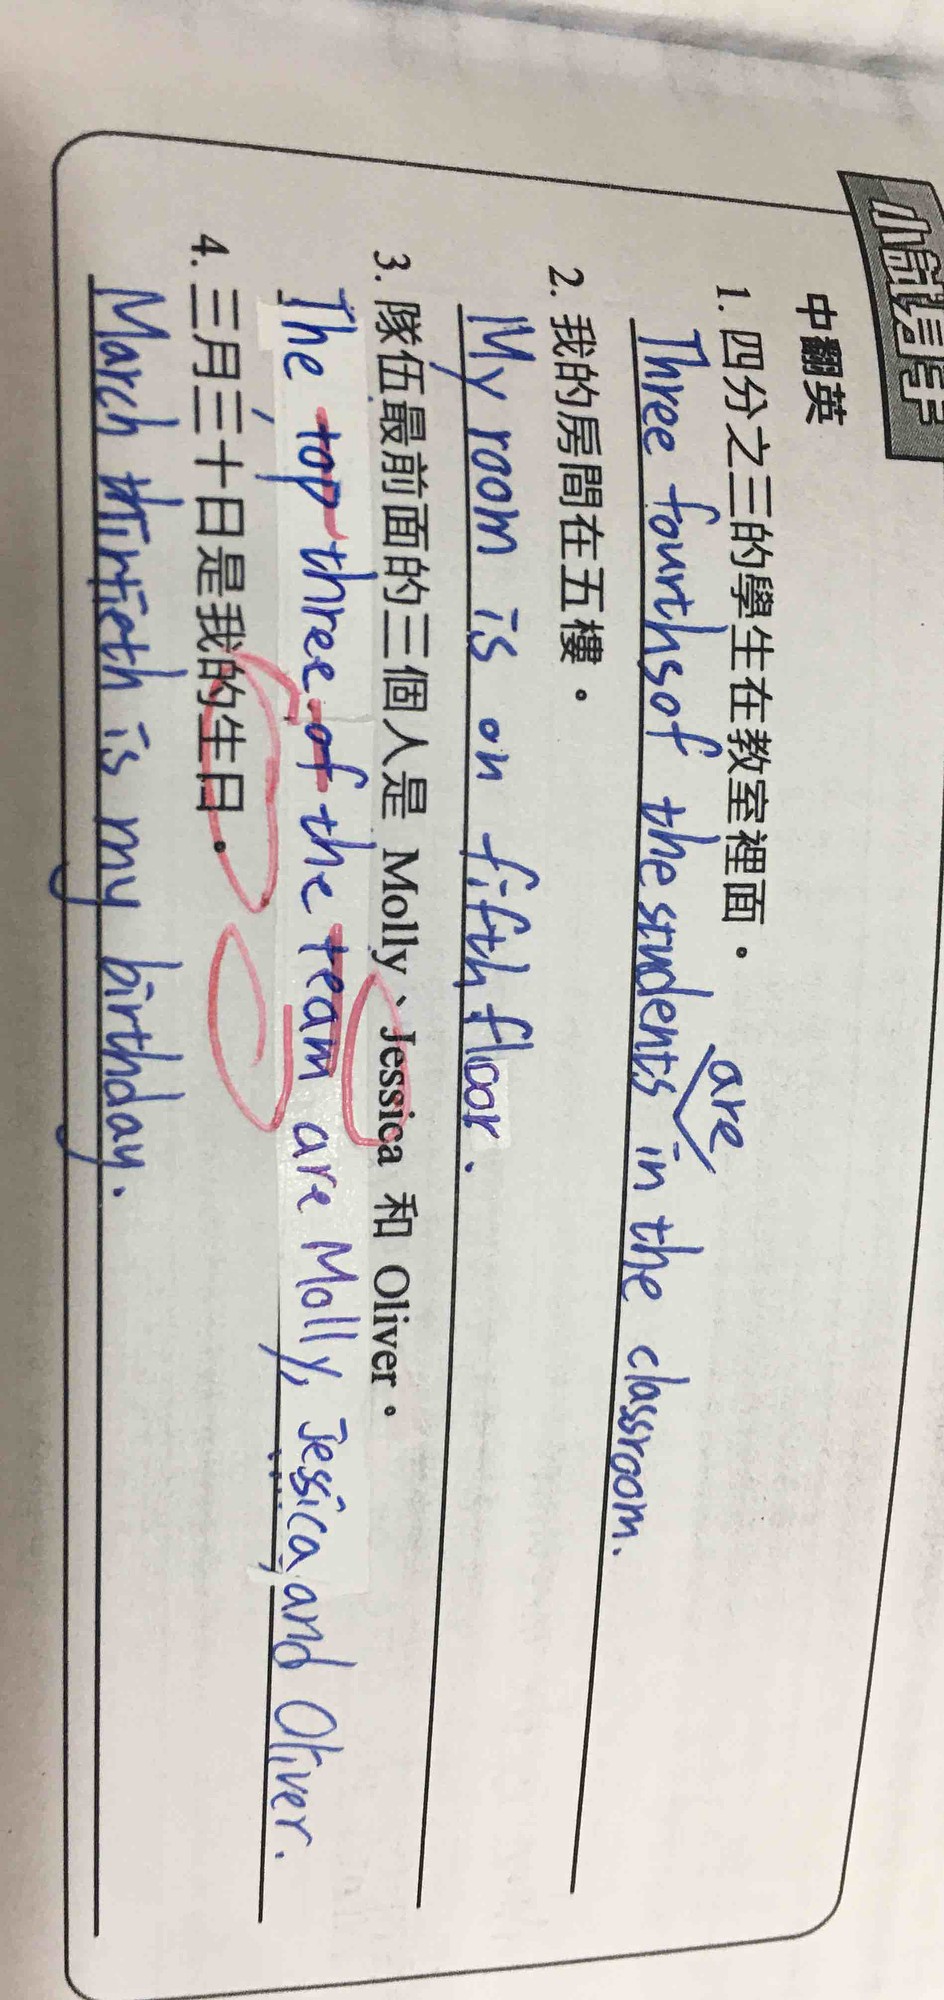 小試身手
中翻英
1. 四分之三的學生在教室裡面。
are
Three fourths of the students in the classroom.
2. 我的房間在五樓。
My room is on fifth floor.
3. 隊伍最前面的三個人是 Molly、Jessica 和 Oliver。
The top three of the team are Molly, Jessica, and Oliver.
4. 三月三十日是我的生日。
March thirtieth is my birthday.